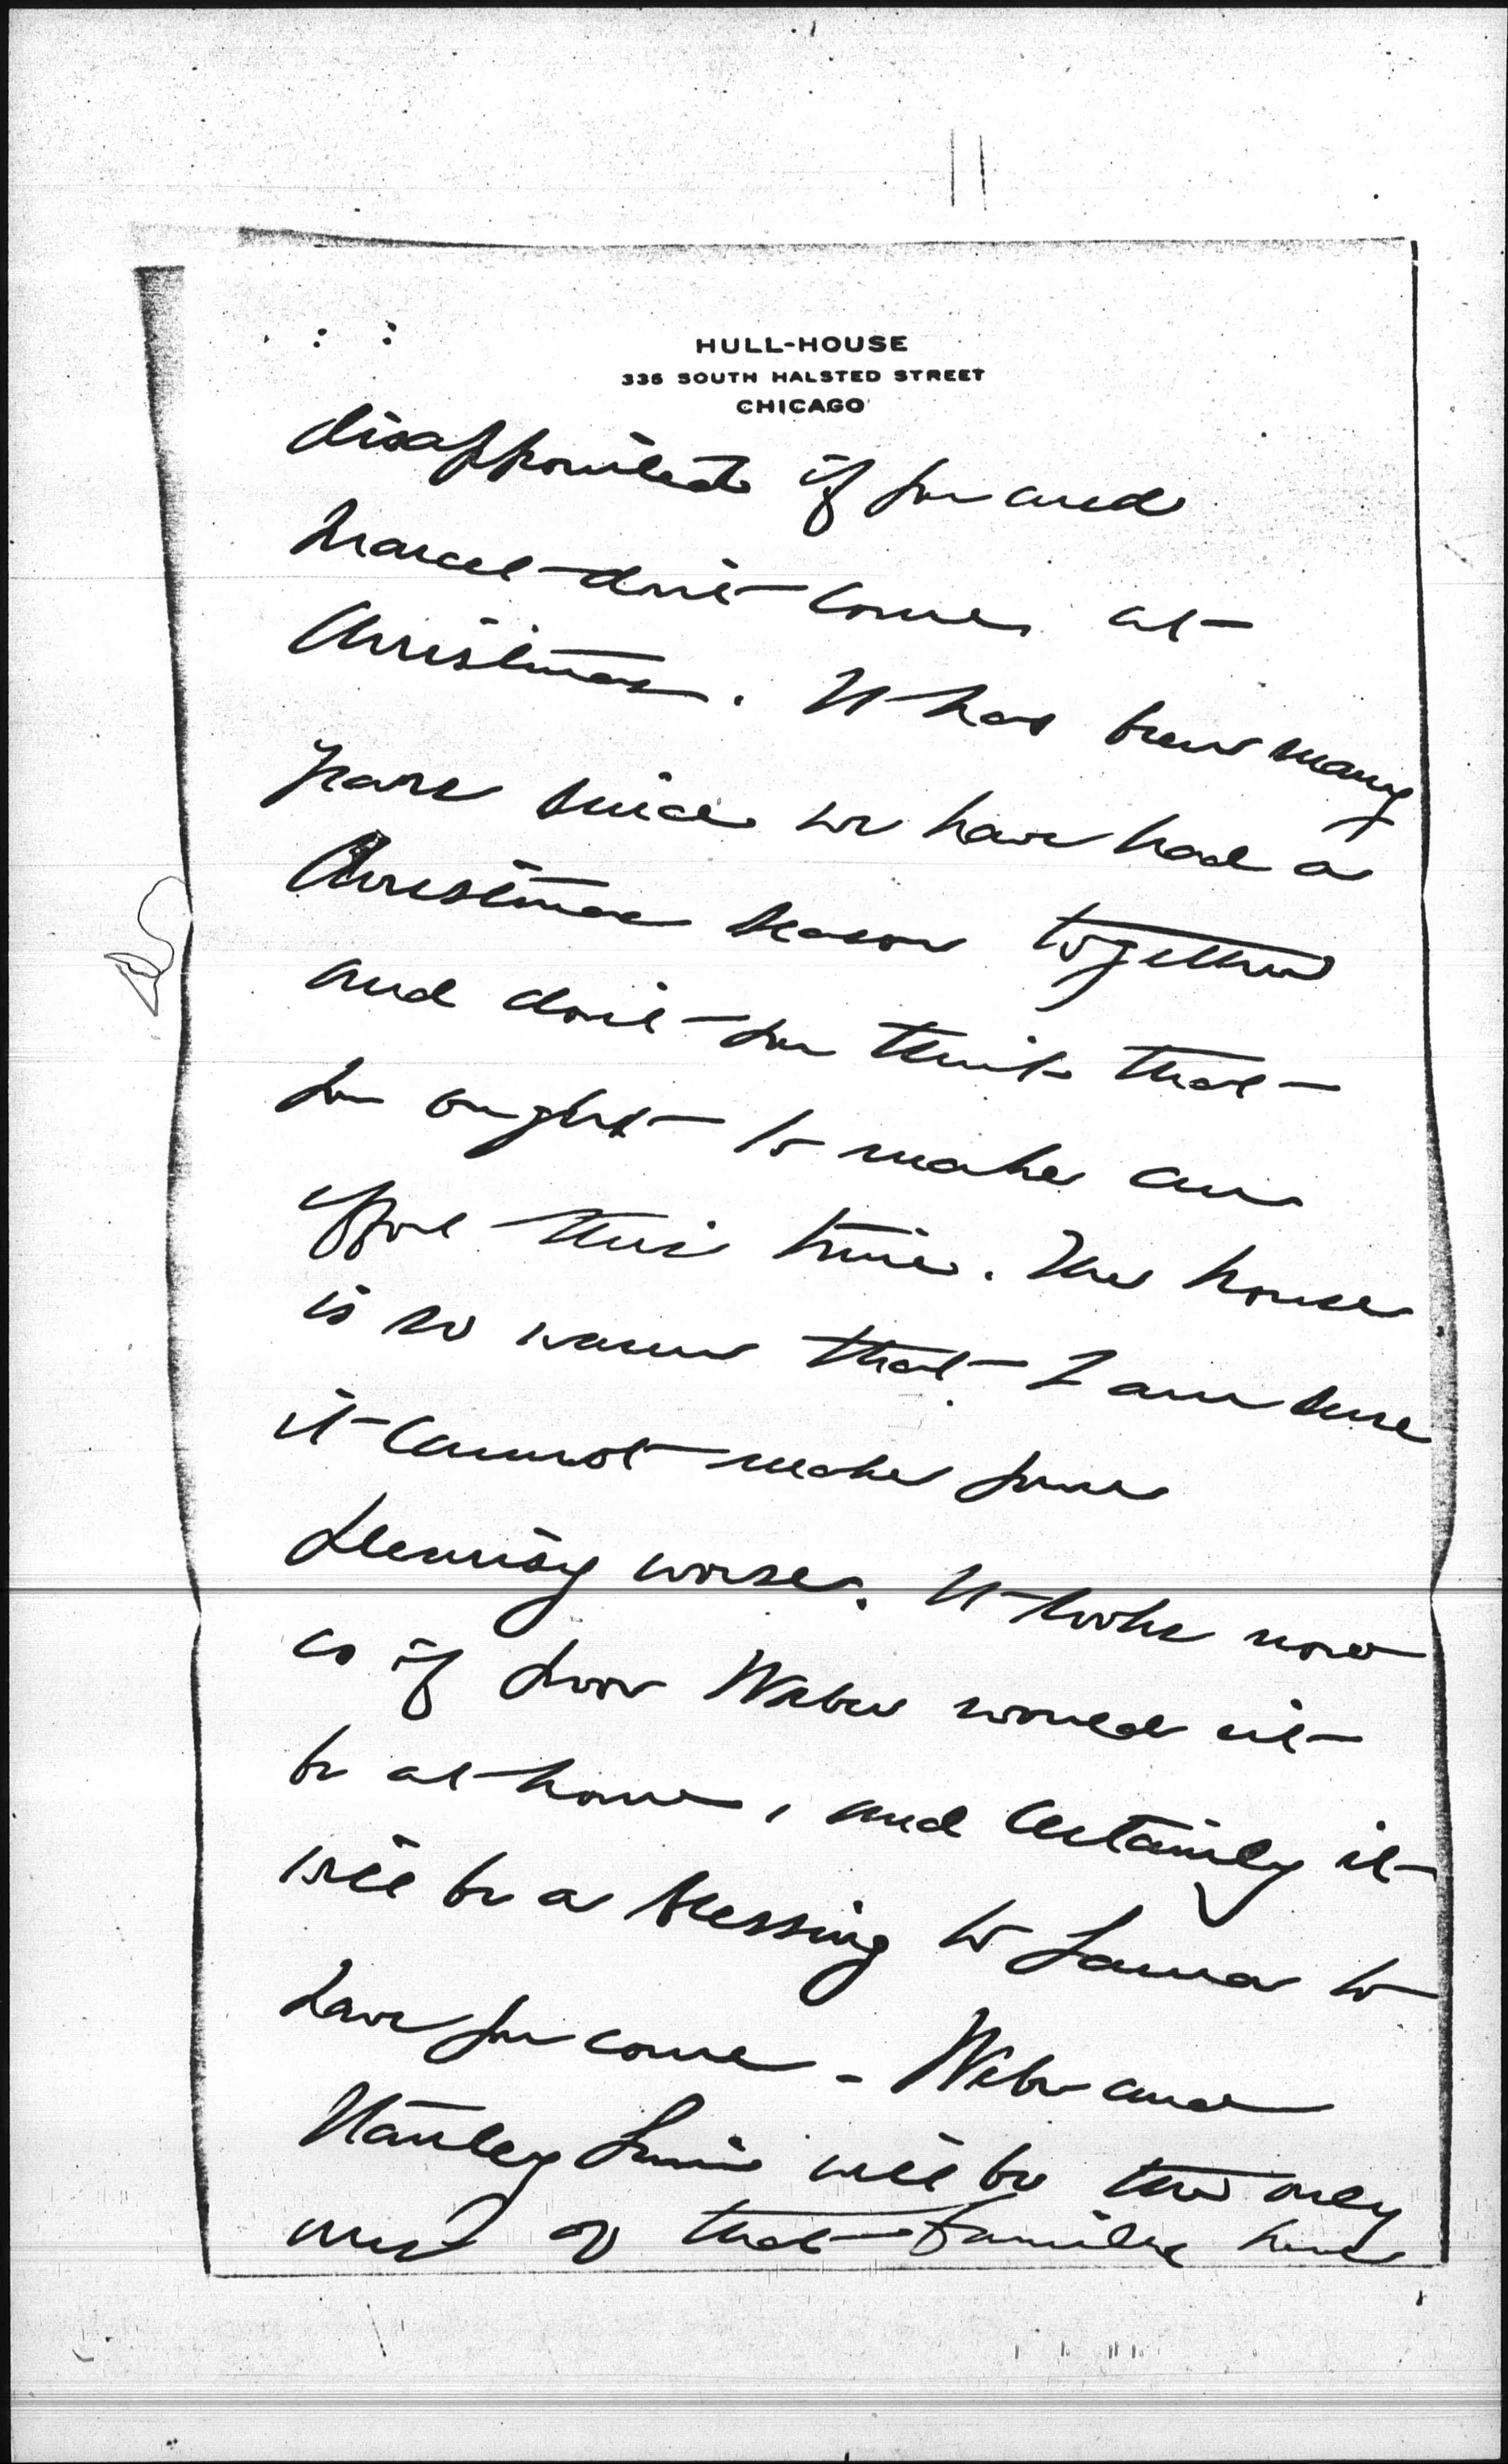 HULL-HOUSE
335 SOUTH HALSTED STREET
CHICAGO
disappointed if you and
Marcet don't come at
Christmas. It has been many
years since we have had a
Christmas season together
and don't you think that
you ought to make an
effort this time. The house
is so warm that I am sure
it cannot make your
pleurisy worse. It looks now
as if poor Weber would not
be at home, and certainly it
will be a blessing to Laura to
have you come - Weber and
Stanley Linn will be the only
ones of that family here